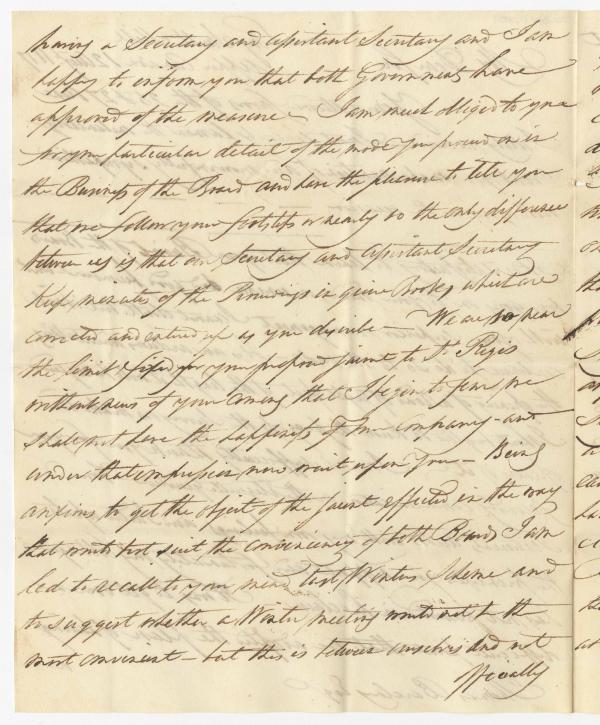 having a Secretary and assistant Secretary and I am
happy to inform you that both Governments have
approved of the measure – I am much obliged to you
for your particular detail of the mode you proceed on in
the Business of the Board and have the pleasure to tell you
that we follow your footsteps or nearly so the only difference
between us is that our Secretary and assistant Secretary
Keep minutes of the Proceedings in Books which are
corrected and entered up as you describe – We are so near
the limit fixed for your proposed jaunt to St. Regis
without news of your coming that I begin to fear we
shall not have the happiness of your company – and
under that impression now wait upon you – Being
anxious to get the object of the jaunt effected in the way
that would best suit the conveniency of both Boards I am
led to recall to your mind last Winters Scheme and
to suggest whether a Winter meeting would not be the
most convenient – but this is between ourselves and not
officially